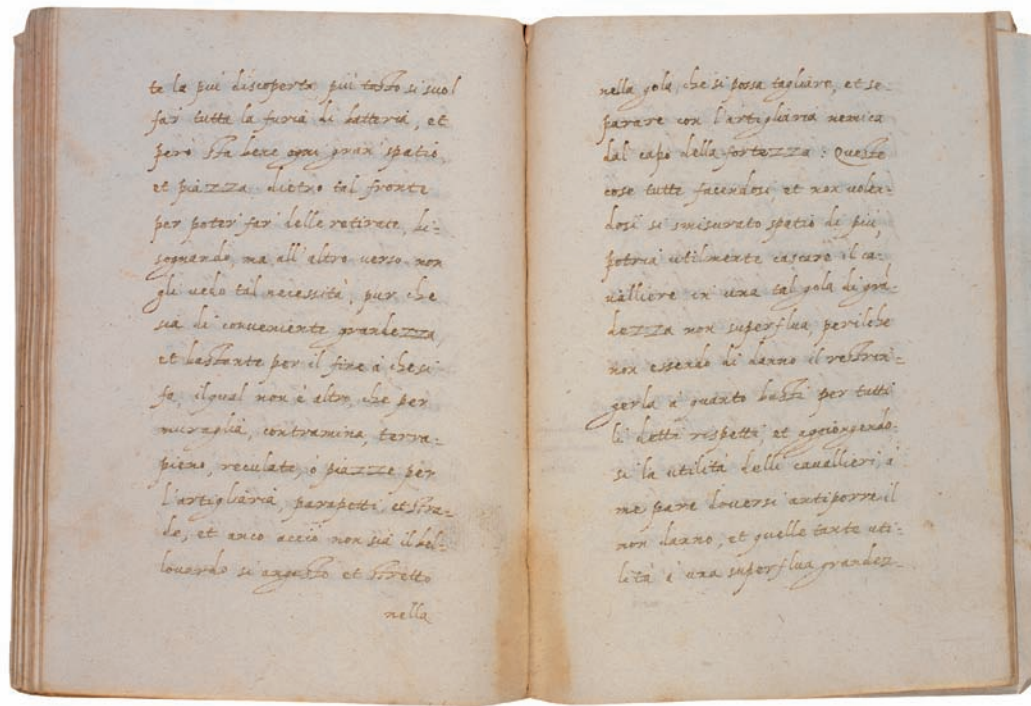 te la piu discoperta piu tosto si suol
far tutta la furia di batteria, et
però sta bene ogni gran spatio,
et piazza dietro tal fronte
per poter far delle retirate, bi=
sognando, ma all'altro verso non
gli vedo tal necessità, pur che
sia di conveniente grandezza,
et bastante per il fine à che si
fa, ilqual non è altro, che per
muraglia, contramina, terra=
pieno, reculate, ò piazze per
l'artigliaria, parapetti, et stra=
de, et anco acciò non sia il bel=
lovardo si angusto et stretto
nella
nella gola, che si possa tagliare, et se=
parare con l'artigliaria nemica
dal capo della fortezza: Queste
cose tutte facendosi, et non volen=
dosi si smisurato spatio di piu,
potria utilmente cascare il ca=
valliere in una tal gola di grã=
dezza non superflua, perilche
non essendo di danno il restrin=
gerla à quanto basti per tutti
li detti rispetti, et aggiongendo=
si la utilità delli cavallieri, à
me pare doversi antiporre il
non danno, et quelle tante uti=
lità à una superflua grandez=